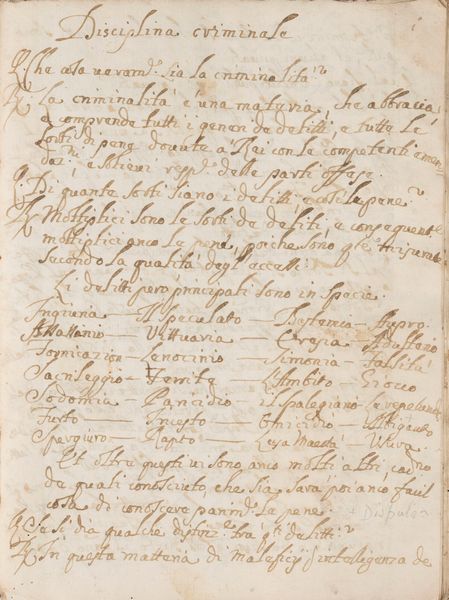 Disciplina criminale
Che cosa veram.te sia la criminalità?
La criminalità è una materia, che abbraccia,
e comprende tutti i generi de delitti, e tutte le
sorti di pene dovute a Rei con le competenti emen
dat.ni, e solievi rispp.e delle parti offese.
Di quante sorti siano i delitti, e così le pene?
Moltiplici sono le sorti de delitti, e consequent.e
moltiplici anco le pene, poiche sono q.te misurate
secondo la qualità degl'eccessi:
Li delitti però principali sono in specie.
Ingiuria — Il Peculato — Bestemia — Stupro
Vettuaria — Eresia — Adulterio
Fornicazion — Lenocinio — Simonia — Falsità
Sacrileggio — Ferite — L'Ambito — Giocco
Sodomia — Paricidio —
Furto — Incesto — Omicidio —
Spergiuro — Rapto — Lesa Maestà — Usura
Et oltre questi vi sono anco molti altri, cad.no
de quali conosciuto, che sia, sarà poi anco facil
cosa di conoscere parim.te la pene.
Se si dia qualche distinz.e trà q.ti delitti?
In questa materia di maleficij p intelligenza de